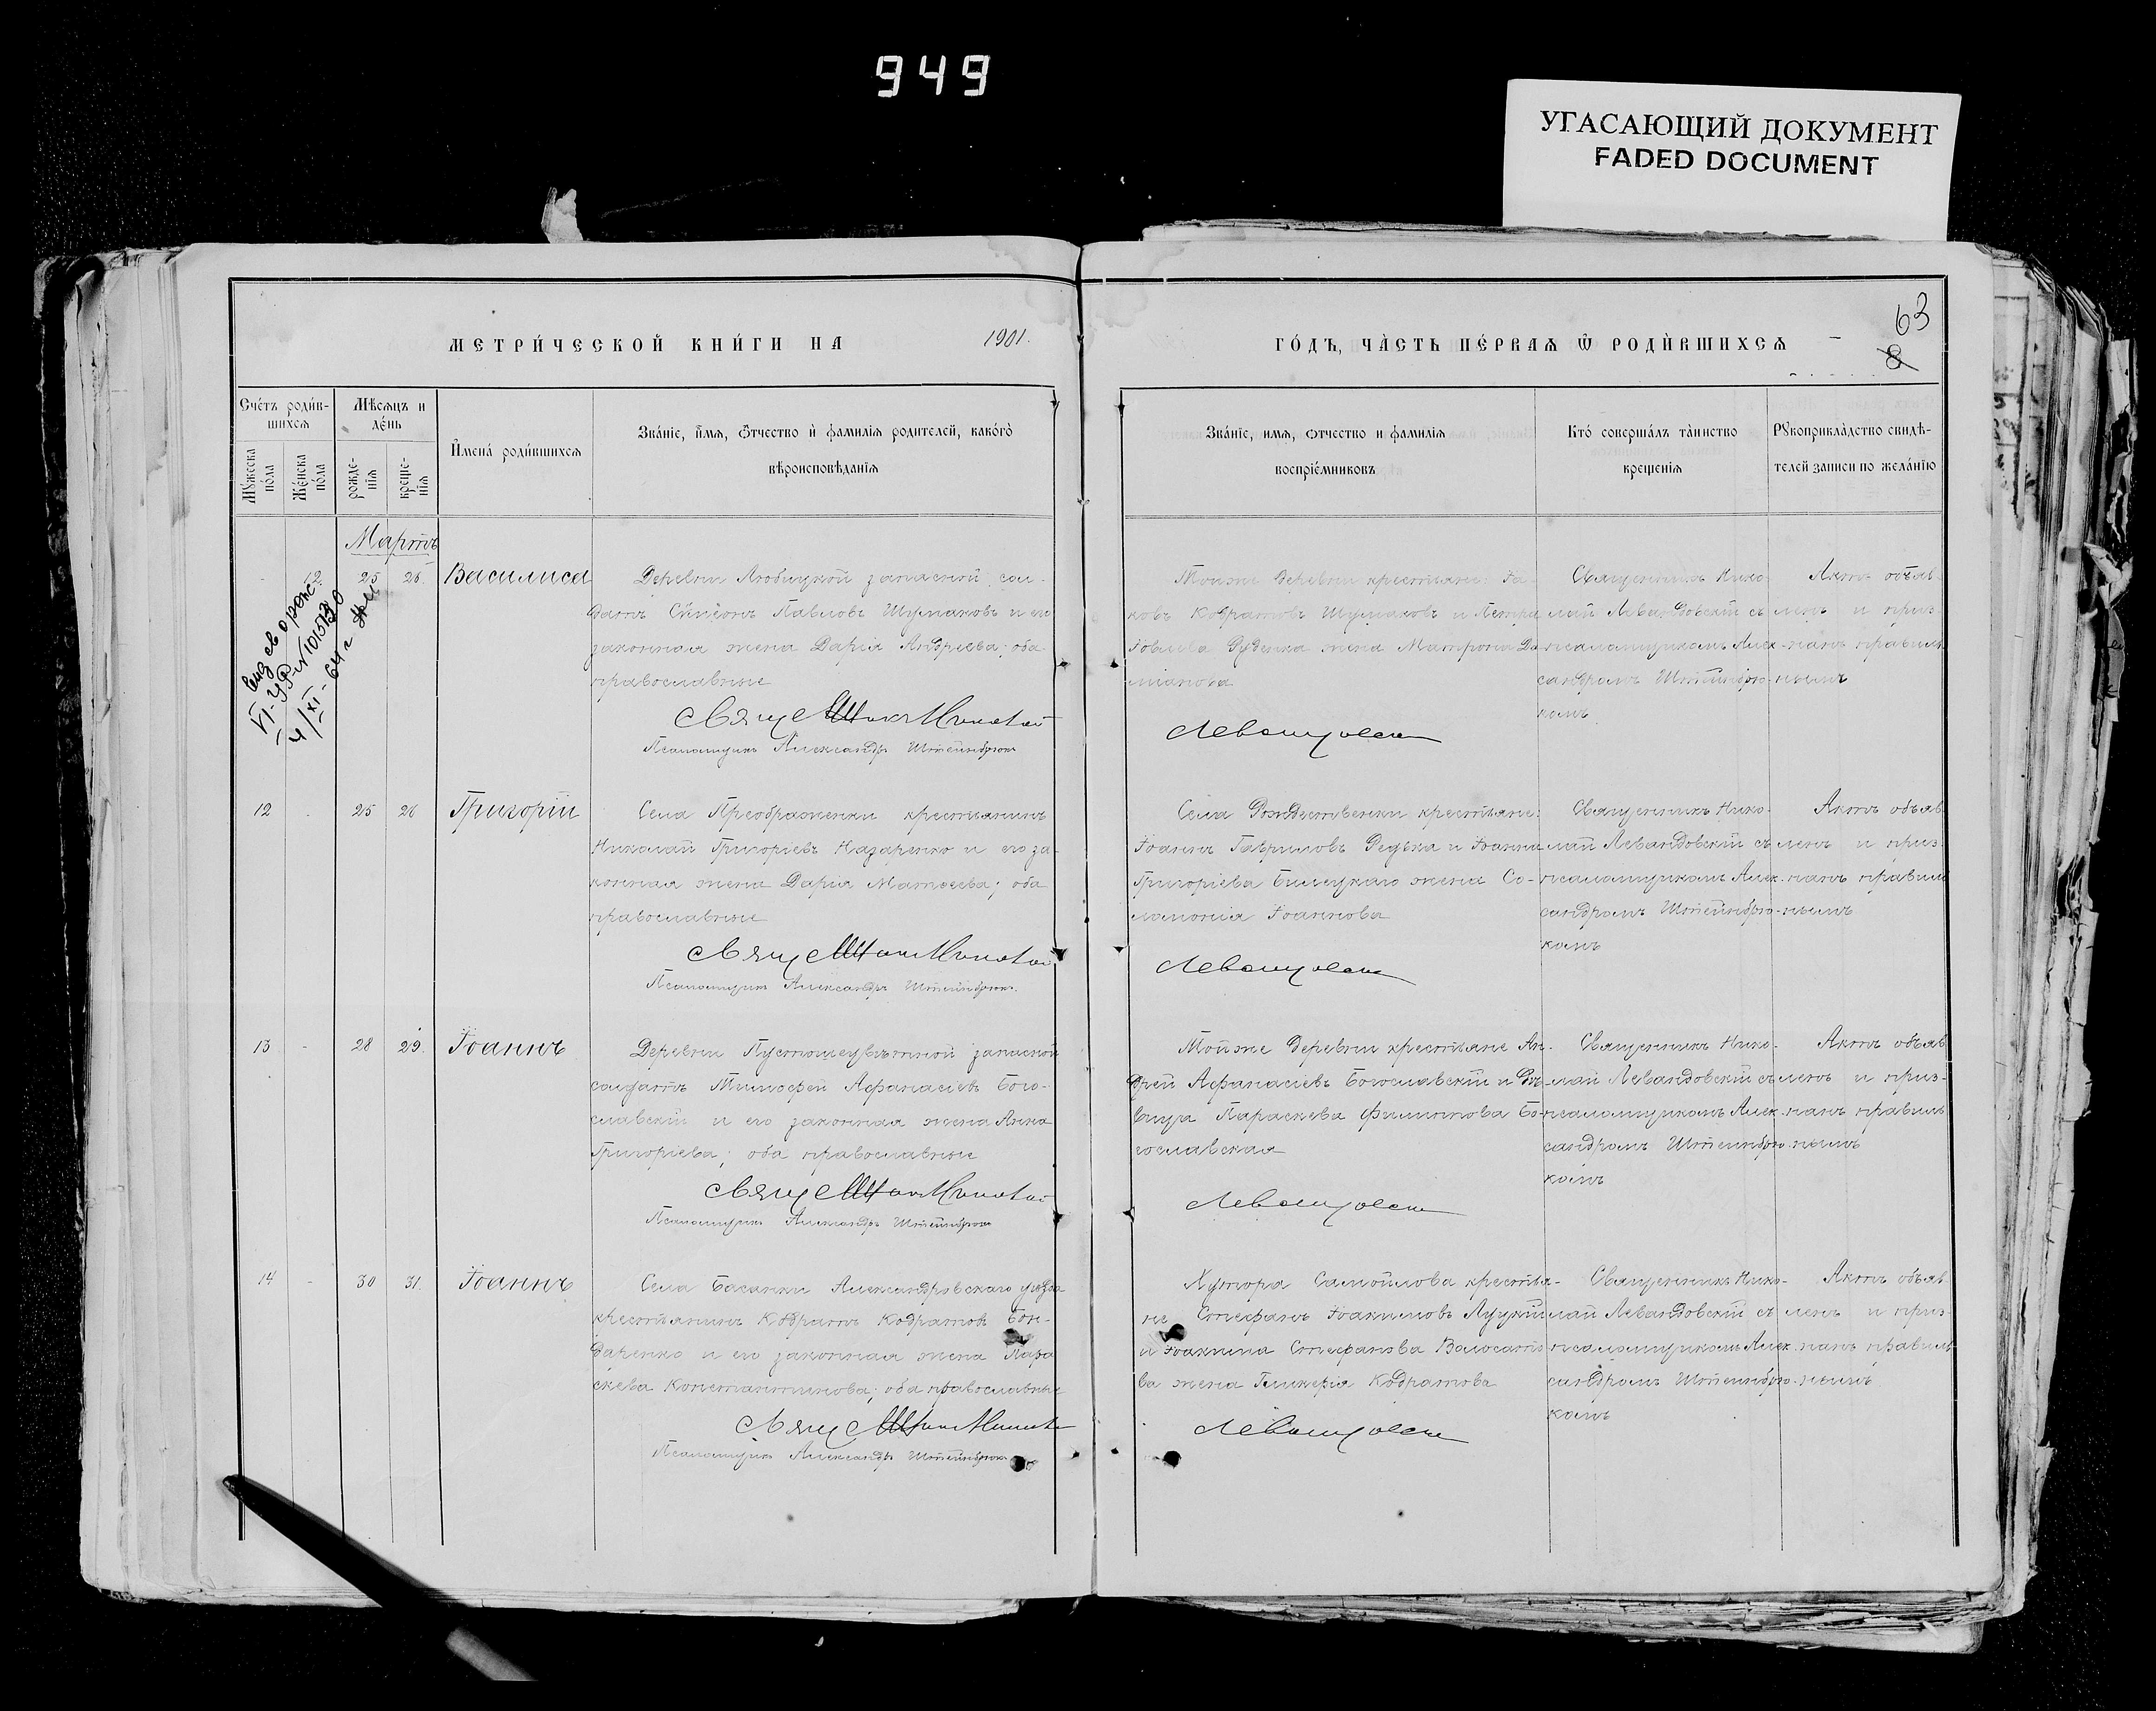 949
УГАСАЮЩИЙ ДОКУМЕНТ
FADED DOCUMENT
63
8
МЕТРИ́ЧЕСКОЙ КНИ́ГИ НА 1901.
ГО́ДЪ, ЧА́СТЬ ПЕ́РВАѦ Ѿ РОДИ́ВШИХСѦ
Сче́тъ роди́в-
шихсѧ
Мѣсѧцъ и
де́нь
Мꙋжеска
по́ла
Же́нска
по́ла
рожде-
нїѧ
креще-
нїѧ
Имена́ роди́вшихсѧ
Зва́нїе, и́мѧ, ѻ҆́тчество и҆ фамилїѧ родителей, како́гѡ
вѣроисповѣ́данїѧ
Зва́нїе, имѧ, ѻтчество и фамилїѧ
воспрїе́мниковъ
Кто̀ соверша́лъ та́инство
крещенїѧ
Рꙋкоприкла́дство свидѣ́-
телей записи по жела́нїю
Мартъ
12. 25 26. Василиса
Деревни Любицкой запасной сол-
датъ Сѵмеонъ Павловъ Шумаковъ и его
законная жена Дарія Андреева; оба
православные
Псаломщикъ Александръ Штейнбрюкъ
Тойже деревни крестьяне: Іа-
ковъ Кодратовъ Шумаковъ и Петра
Іовлева Руденка жена Матрона Да-
міанова
Левандовскій
Священникъ Нико-
лай Левандовскій съ
псаломщикомъ Алек-
сандромъ Штейнбрю-
комъ
Актъ объяв-
ленъ и приз-
нанъ правиль
нымъ
12 - 25 26 Григорій
Села Преображенки крестьянинъ
Николай Григоріевъ Назаренко и его за-
конная жена Дарія Матѳеева; оба
православные
Псаломщикъ Александръ Штейнбрюкъ
Села Рождественки крестьяне:
Іоаннъ Гавриловъ Редька и Іоанна
Григоріева Билецкаго жена Со-
ломонія Іоаннова
Левандовскій
Священникъ Нико-
лай Левандовскій съ
псаломщикомъ Алек-
сандромъ Штейнбрю-
комъ
Актъ объяв
ленъ и приз-
нанъ правиль
нымъ
13 - 28 29. Іоаннъ
Деревни Пустошеувѣтной запасной
солдатъ Тимофей Афанасіевъ Бого-
славскій и его законная жена Анна
Григоріева; оба православные
Псаломщикъ Александръ Штейнбрюкъ
Тойже деревни крестьяне Ан-
дрей Афанасіевъ Богославскій и дѣ-
вица Параскева Филиппова Бо-
гославская
Левандовскій
Священникъ Нико-
лай Левандовскій съ
псаломщикомъ Алек-
сандромъ Штейнбрю-
комъ
Актъ объяв
ленъ и приз-
нанъ правиль
нымъ
14 - 30 31. Іоаннъ
Села Басанки Александровскаго уѣзда
крестьянинъ Кодратъ Кодратовъ Бон-
даренко и его законная жена Пара
скева Константинова; оба православные
Псаломщикъ Александръ Штейнбрюкъ
Хутора Самойлова крестья-
не Стефанъ Іоакимовъ Луцкій
и Іоакима Стефанова
ва жена Гликерія Кодратова
Левандовскій
Священникъ Нико-
лай Левандовскій съ
псаломщикомъ Алек
сандромъ Штейнбрю-
комъ
Актъ объяв
ленъ и приз-
нанъ правиль
нымъ